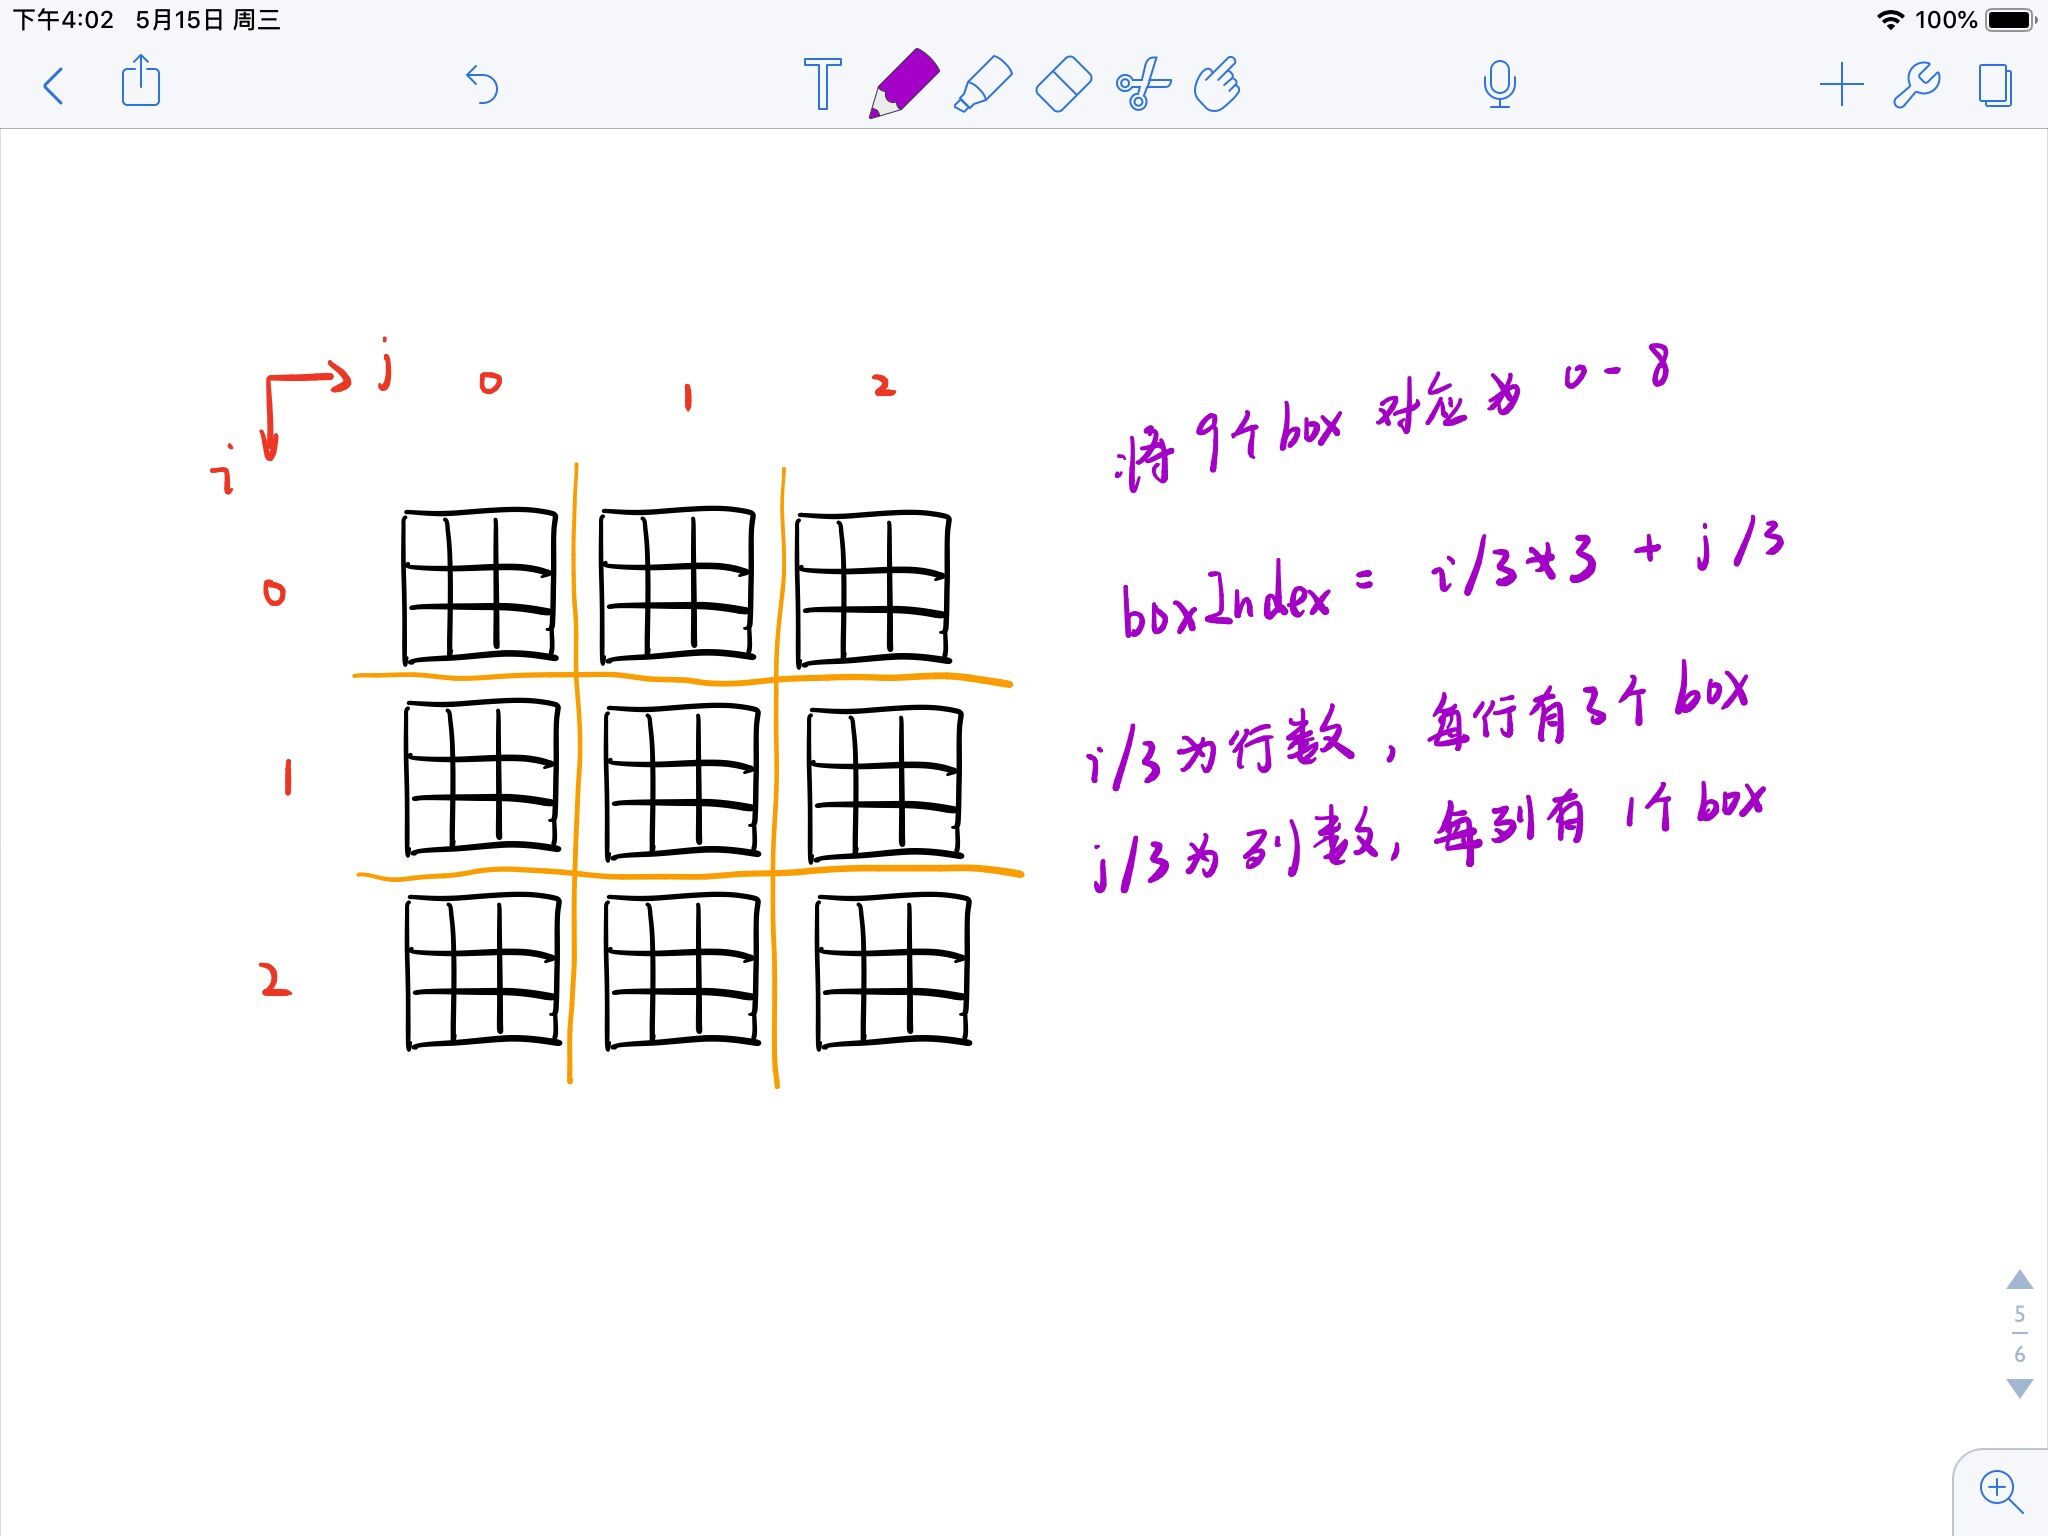 下午4:02 5月15日 周三
100%
T
j 0 1 2
i
0
1
2
将9个box 对应为 0-8
boxIndex = i/3*3 + j/3
i/3为行数，每行有3个box
j/3为列数，每列有1个box
5
6